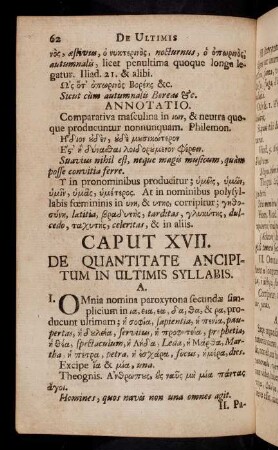 62 DE ULTIMIS
νὸς, æstivus, ὁ νυκτερινὸς, nocturnus, ὁ ὀπωρινὸς;
autumnalis, licet penultima quoque longa le-
gatur. Iliad. 21. & alibi.
Ὡς ὅτ' ὀπωρινὸς Βορέης &c.
Sicut cùm autumnalis Boreas &c.
ANNOTATIO.
Comparativa masculina in ιων, & neutra quo-
que producuntur nonnunquam. Philemon.
Ἥδιον οὐδὲν, οὐδὲ μυσικώτερον
Ἔς' ἢ δύνασθαι λοιδορούμενον φέρειν.
Suavius nihil est, neque magis musicum, quàm
posse convitia ferre.
Υ in pronominibus producitur; ὑμῶς, ὑμῶν,
ὑμῖν, ὑμᾶς, ὑμέτερος. At in nominibus polysyl-
labis fœmininis in υνη, & υτης, corripitur; γηθο-
σύνη, lætitia, βραδυτὴς, tarditas, γλυκύτης, dul-
cedo, ταχυτὴς, celeritas, & in aliis.
CAPUT XVII.
DE QUANTITATE ANCIPI-
TUM IN ULTIMIS SYLLABIS.
A.
I. OMnia nomina paroxytona secundæ sim-
plicium in ια, εια, δα, θα, & ρα, pro-
ducunt ultimam; ἡ σοφία, sapientia, ἡ πενία, pau-
pertas, ἡ δυλεία, servitus, ἡ προφητεία, prophetia,
ἡ θέα, spectaculum, ἡ Λήδα, Leda, ἡ Μάρθα, Mar-
tha, ἡ πέτρα, petra, ἡ ἐσχάρα, focus, ἡ μύρα, dies.
Excipe ἴα & μία, una.
Theognis. Ἀνθρώπυς ὣς ναῦς μὴ μία πάντας
ἄγοι.
Homines, quos navis non una omnes agit.
II. Pa-